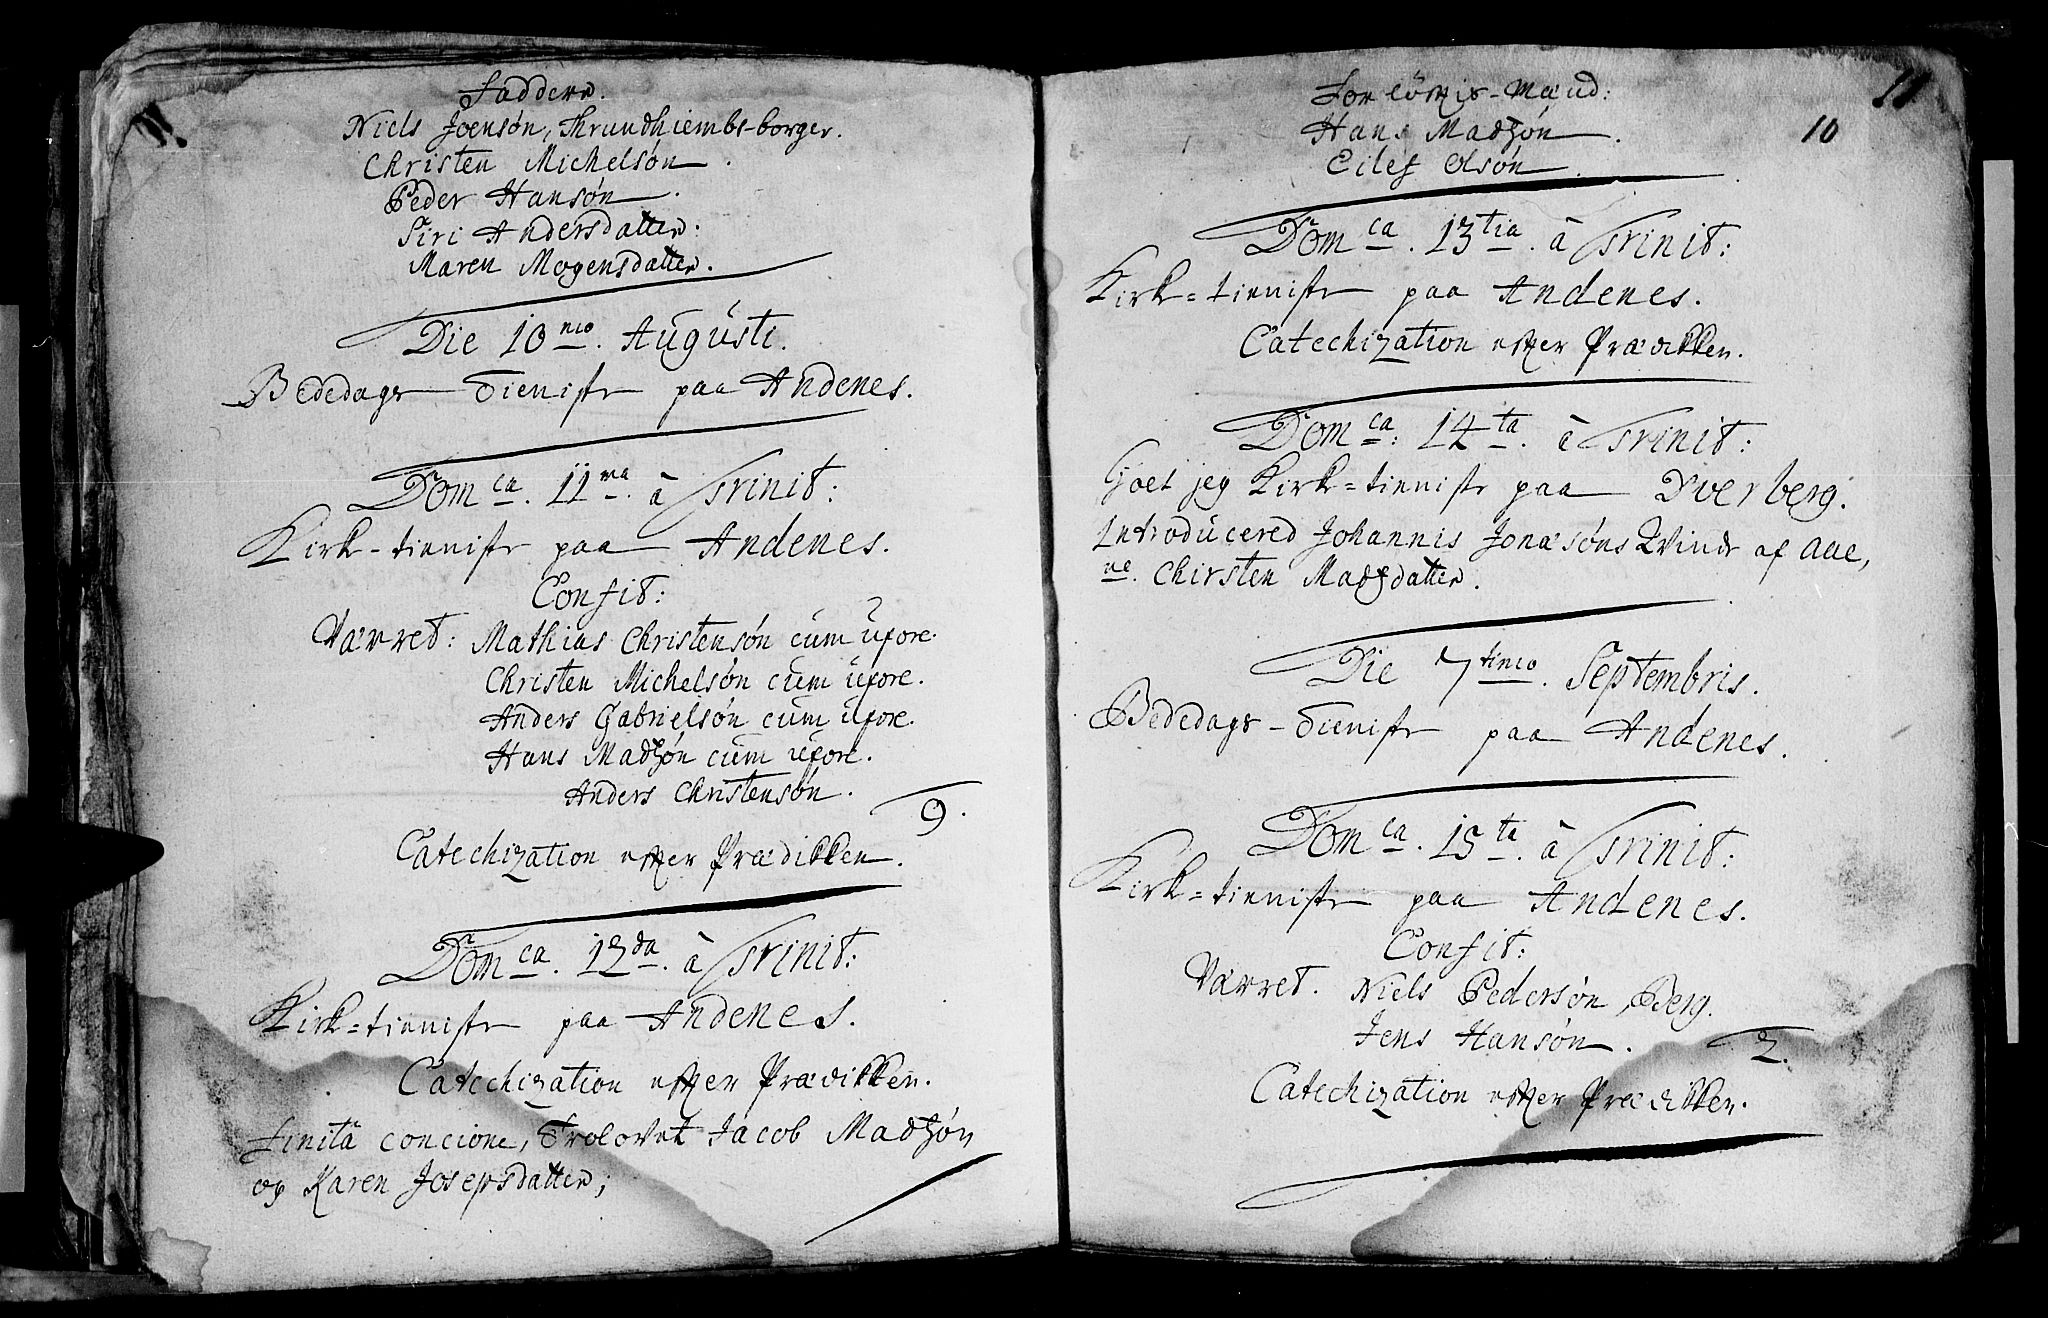 Faddere.
Niels Joensøn, Thrundhiembs-borger.
Christen Michelsøn.
Peder Hansøn.
Siri Andersdatter:
Maren Mogensdatter.
Die 10 nio. Augusti.
Bededags Tieniste paa Andenes.
Dom ca. 11 ma. à Trinit:
Kirk-tieniste paa Andenes.
Confit:
Værret: Mathias Christensøn cum uxore.
Christen Michelsøn cum uxore.
Anders Gabrielsøn cum uxore.
Hans Madtzøn cum uxore.
Anders Christensøn.
9.
Catechization efter Prædikken.
Dom ca. 12 da. à Trinit:
Kirk=tieniste paa Andenes.
Catechization efter Prædikken.
Finitâ concione, Trolovet Jacob Madtzøn
og Karen Josepsdatter;
11
Forløftis-Mænd:
Hans Madtzøn.
10
Eilef Olsøn.
Dom ca. 13 tia. à Trinit:
Kirk=tieniste paa Andenes.
Catechization efter Prædikken.
Dom ca: 14 ta. à Trinit:
Holt jeg Kirk=tieniste paa Dverberg.
Introducered Johannis Jonæsøns Qvinde af Aae,
ne. Chirsten Madsdatter.
Die 7 timo. Septembris.
Bededags-Tieniste paa Andenes.
Dom ca. 15 ta. à Trinit:
Kirk=tieniste paa Andenes.
Confit:
Værret. Niels Pedersøn, Berg.
Jens Hansøn.
2.
Catechization efter Prædikken.